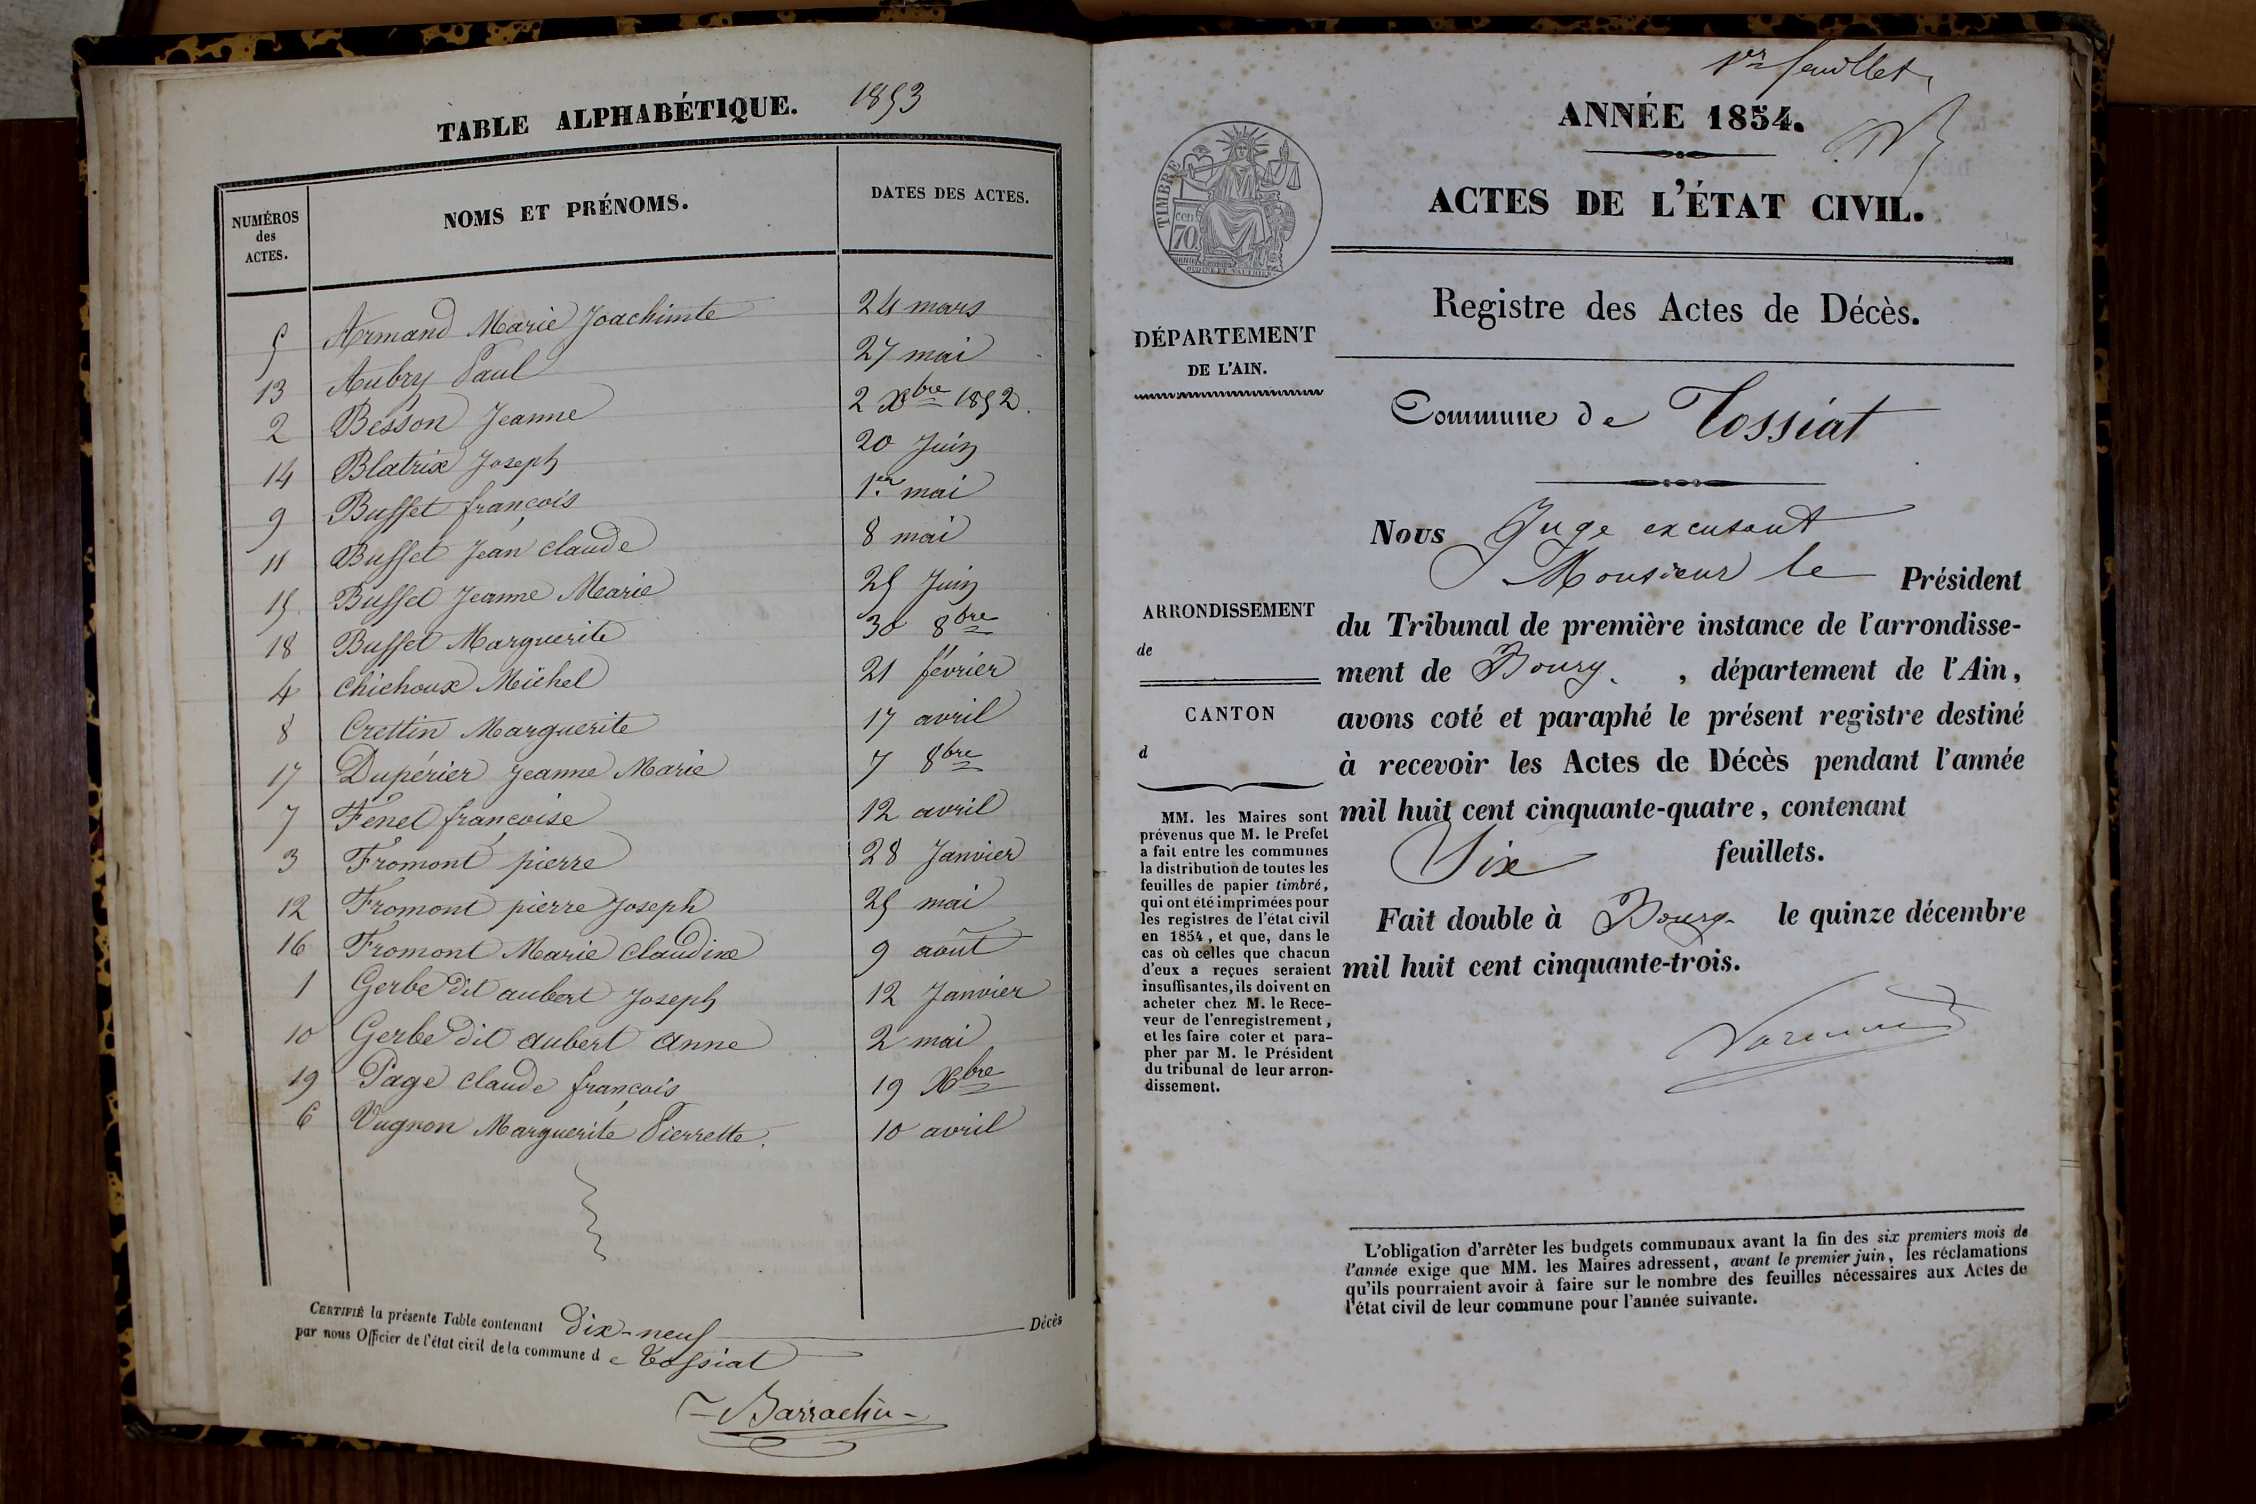 TABLE ALPHABÉTIQUE. 1853
NUMÉROS des ACTES. NOMS ET PRÉNOMS. DATES DES ACTES.
5 Armand Marie Joachimte 24 mars
13 Aubry Paul 27 mai
2 Besson Jeanne 2 Xbre 1852.
14 Blatrix Joseph 20 Juin
9 Buffet françois 1er mai
11 Buffet Jean claude 8 mai
15. Buffet Jeanne Marie 25 Juin
18 Buffet Marguerite 30 8bre
4 Chichoux Michel 21 février
8 Crettin Marguerite 17 avril
17 Dupérier Jeanne Marie 7 8bre
7 Fenel françoise 12 avril
3 Fromont pierre 28 Janvier
12 Fromont pierre Joseph 25 mai
16 Fromont Marie Claudine 9 août
1 Gerbe dit aubert Joseph 12 Janvier
10 Gerbe dit aubert anne 2 mai
19 Page claude françois 19 Xbre
6 Vugnon Marguerite Pierrette. 10 avril
CERTIFIÉ la présente Table contenant dix-neuf Décès
par nous Officier de l'état civil de la commune de Tossiat
Barrachin
1er feuillet
ANNÉE 1854.
ACTES DE L'ÉTAT CIVIL.
TIMBRE
70 cen
Registre des Actes de Décès.
DÉPARTEMENT
DE L'AIN.
Commune de Tossiat
Nous Juge excusant
Monsieur le Président
du Tribunal de première instance de l'arrondisse-
ment de Bourg, département de l'Ain,
avons coté et paraphé le présent registre destiné
à recevoir les Actes de Décès pendant l'année
mil huit cent cinquante-quatre, contenant
Six feuillets.
Fait double à Bourg le quinze décembre
mil huit cent cinquante-trois.
ARRONDISSEMENT
de
CANTON
d
MM. les Maires sont
prévenus que M. le Préfet
a fait entre les communes
la distribution de toutes les
feuilles de papier timbré,
qui ont été imprimées pour
les registres de l'état civil
en 1854, et que, dans le
cas où celles que chacun
d'eux a reçues seraient
insuffisantes, ils doivent en
acheter chez M. le Rece-
veur de l'enregistrement,
et les faire coter et para-
pher par M. le Président
du tribunal de leur arron-
dissement.
L'obligation d'arrêter les budgets communaux avant la fin des six premiers mois de
l'année exige que MM. les Maires adressent, avant le premier juin, les réclamations
qu'ils pourraient avoir à faire sur le nombre des feuilles nécessaires aux Actes de
l'état civil de leur commune pour l'année suivante.